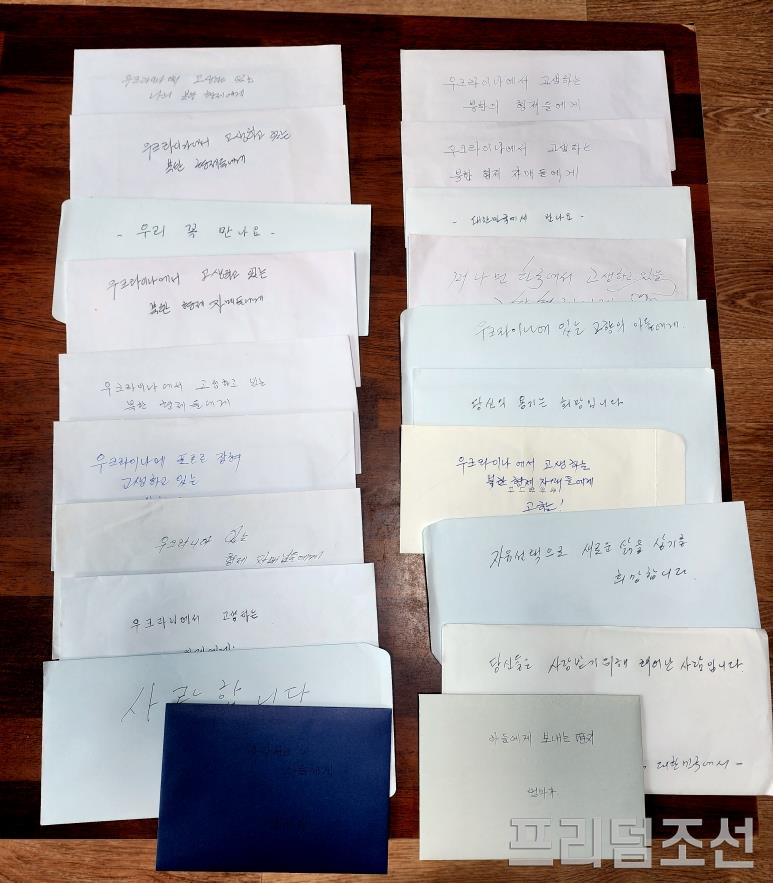 우크라이나에 고생하고 있는
나의 북한 형제에게
우크라이나에서 고생하고 있는
북한 형제들에게
- 우리 꼭 만나요 -
우크라이나에서 고생하고 있는
북한 형제 자매들에게
우크라이나에서 고생하고 있는
북한 형제들에게
우크라이나에 포로로 잡혀
고생하고 있는
있는
형제 자매님들에게
우크라이나에서 고생하는
사랑합니다
우크라이나에서 고생하는
북한의 형제들에게
우크라이나에서 고생하는
북한 형제 자매들에게
- 대한민국에서 만나요 -
머나먼 한국에서 고생하고 있는
우크라이나에 있는 고향의 아들에게.
당신의 용기는 희망입니다
우크라이나에서 고생하는
북한 형제 자매들에게
고함!
자유선택으로 새로운 삶을 살기를
희망합니다.
당신들은 사랑받기 위해 태어난 사람입니다.
- 대한민국에서 -
아들에게 보내는
엄마가
프리덤조선